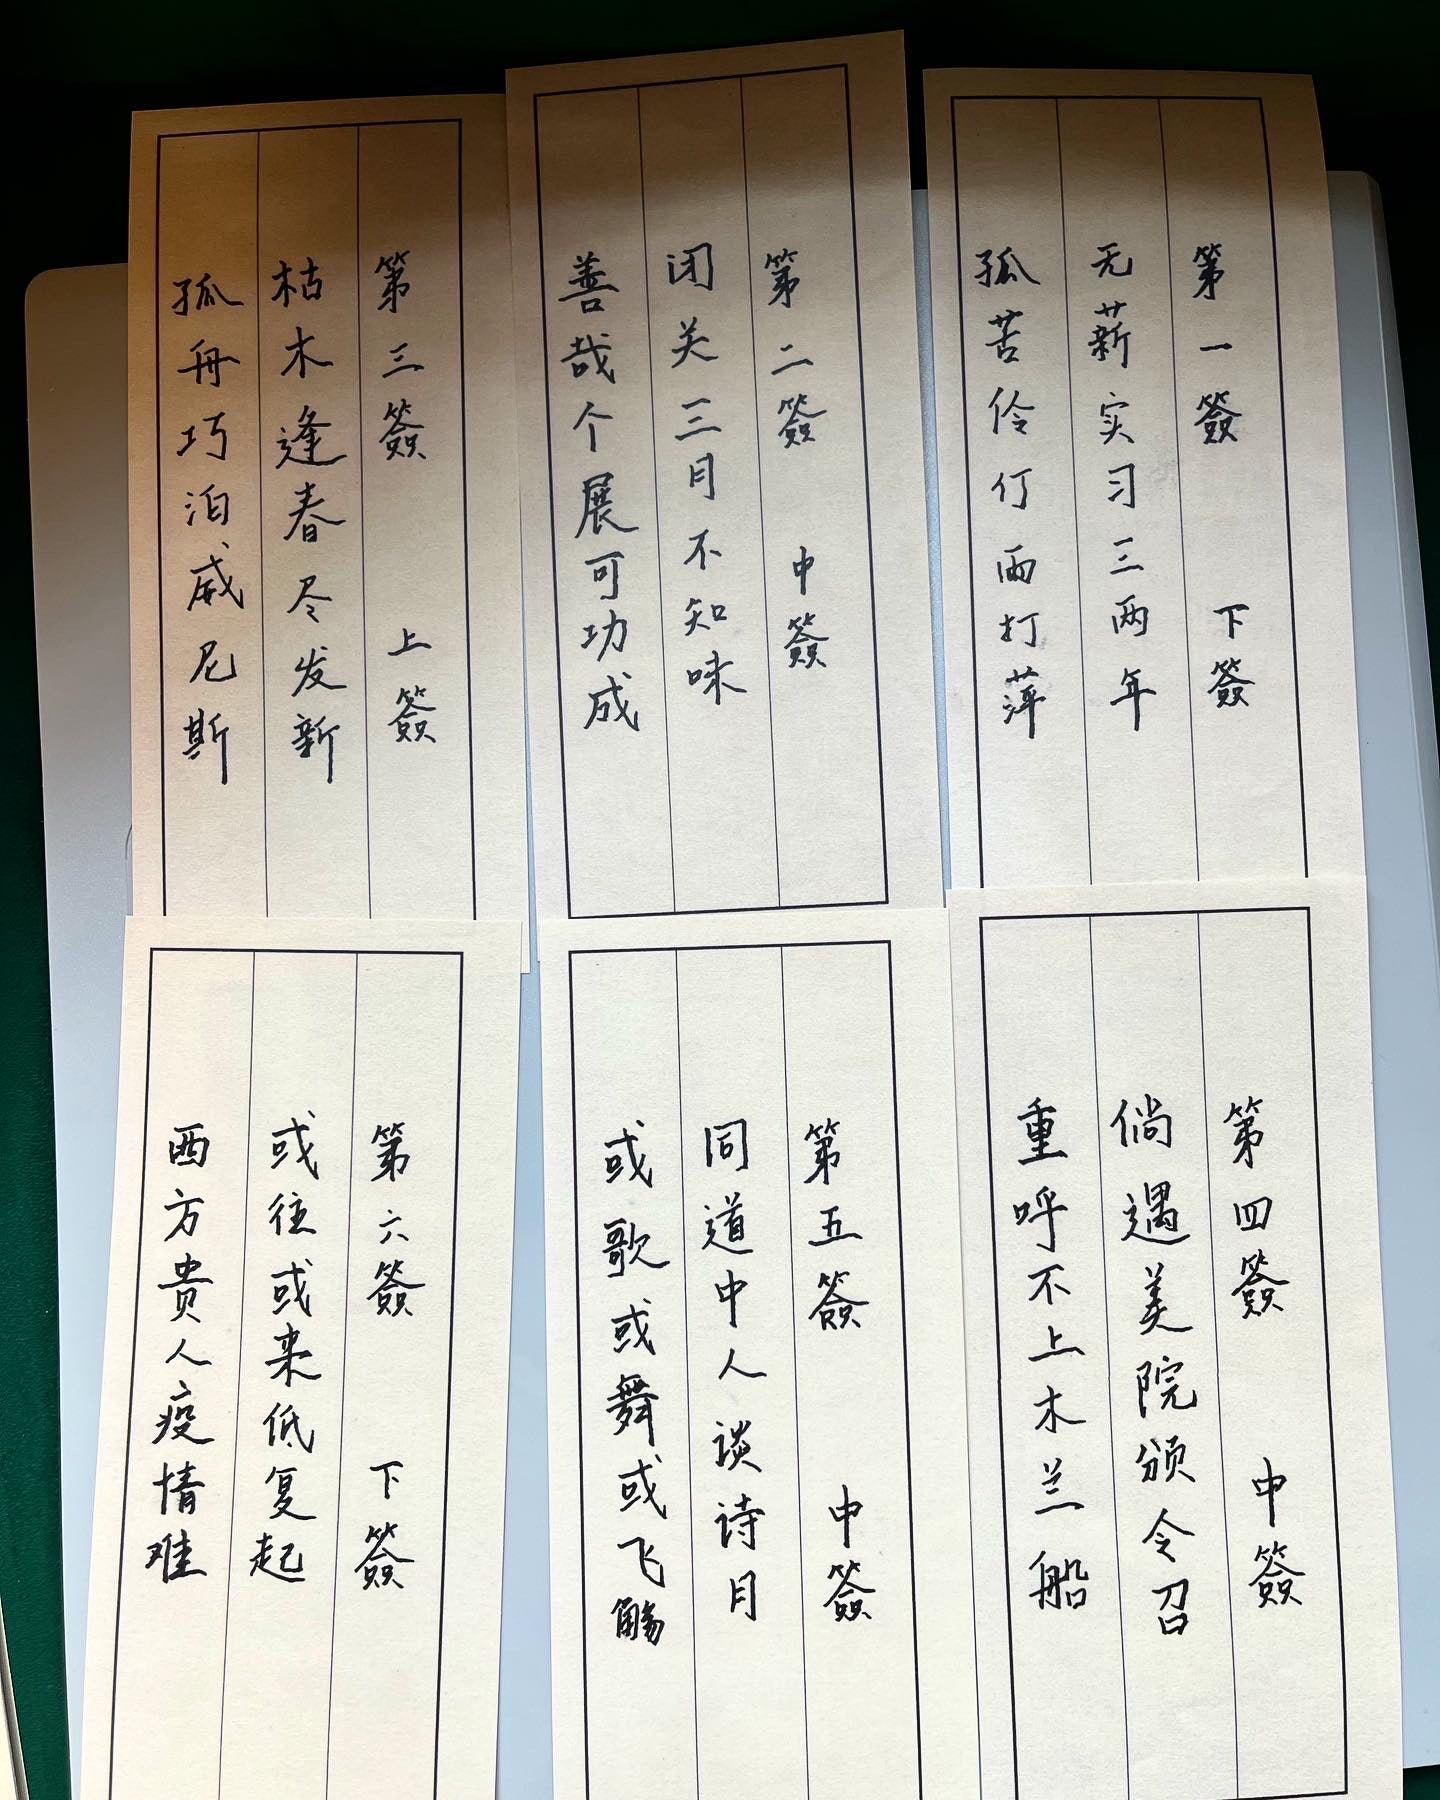 第一簽 下簽
无薪实习三两年
孤苦伶仃雨打萍
第二簽 中簽
闭关三月不知味
善哉个展可功成
第三簽 上簽
枯木逢春尽发新
孤舟巧泊威尼斯
第四簽 中簽
倘遇美院颁令召
重呼不上木兰船
第五簽 中簽
同道中人谈诗月
或歌或舞或飞觞
第六簽 下簽
或往或来低复起
西方贵人疫情难